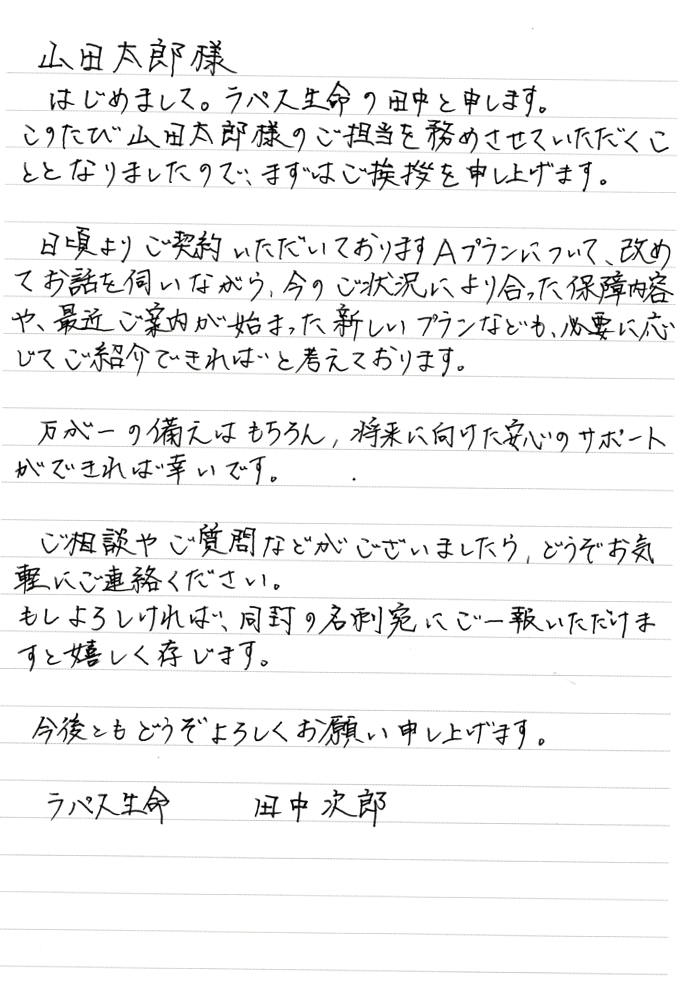 山田太郎様
はじめまして。ラパス生命の田中と申します。
このたび山田太郎様のご担当を務めさせていただくこ
ととなりましたので、まずはご挨拶を申し上げます。
日頃よりご契約いただいておりますAプランについて、改め
てお話を伺いながら、今のご状況により合った保障内容
や、最近ご案内が始まった新しいプランなども、必要に応
じてご紹介できればと考えております。
万が一の備えはもちろん、将来に向けた安心のサポート
ができれば幸いです。
ご相談やご質問などがございましたら、どうぞお気
軽にご連絡ください。
もしよろしければ、同封の名刺宛にご一報いただけま
すと嬉しく存じます。
今後ともどうぞよろしくお願い申し上げます。
ラパス生命 田中次郎